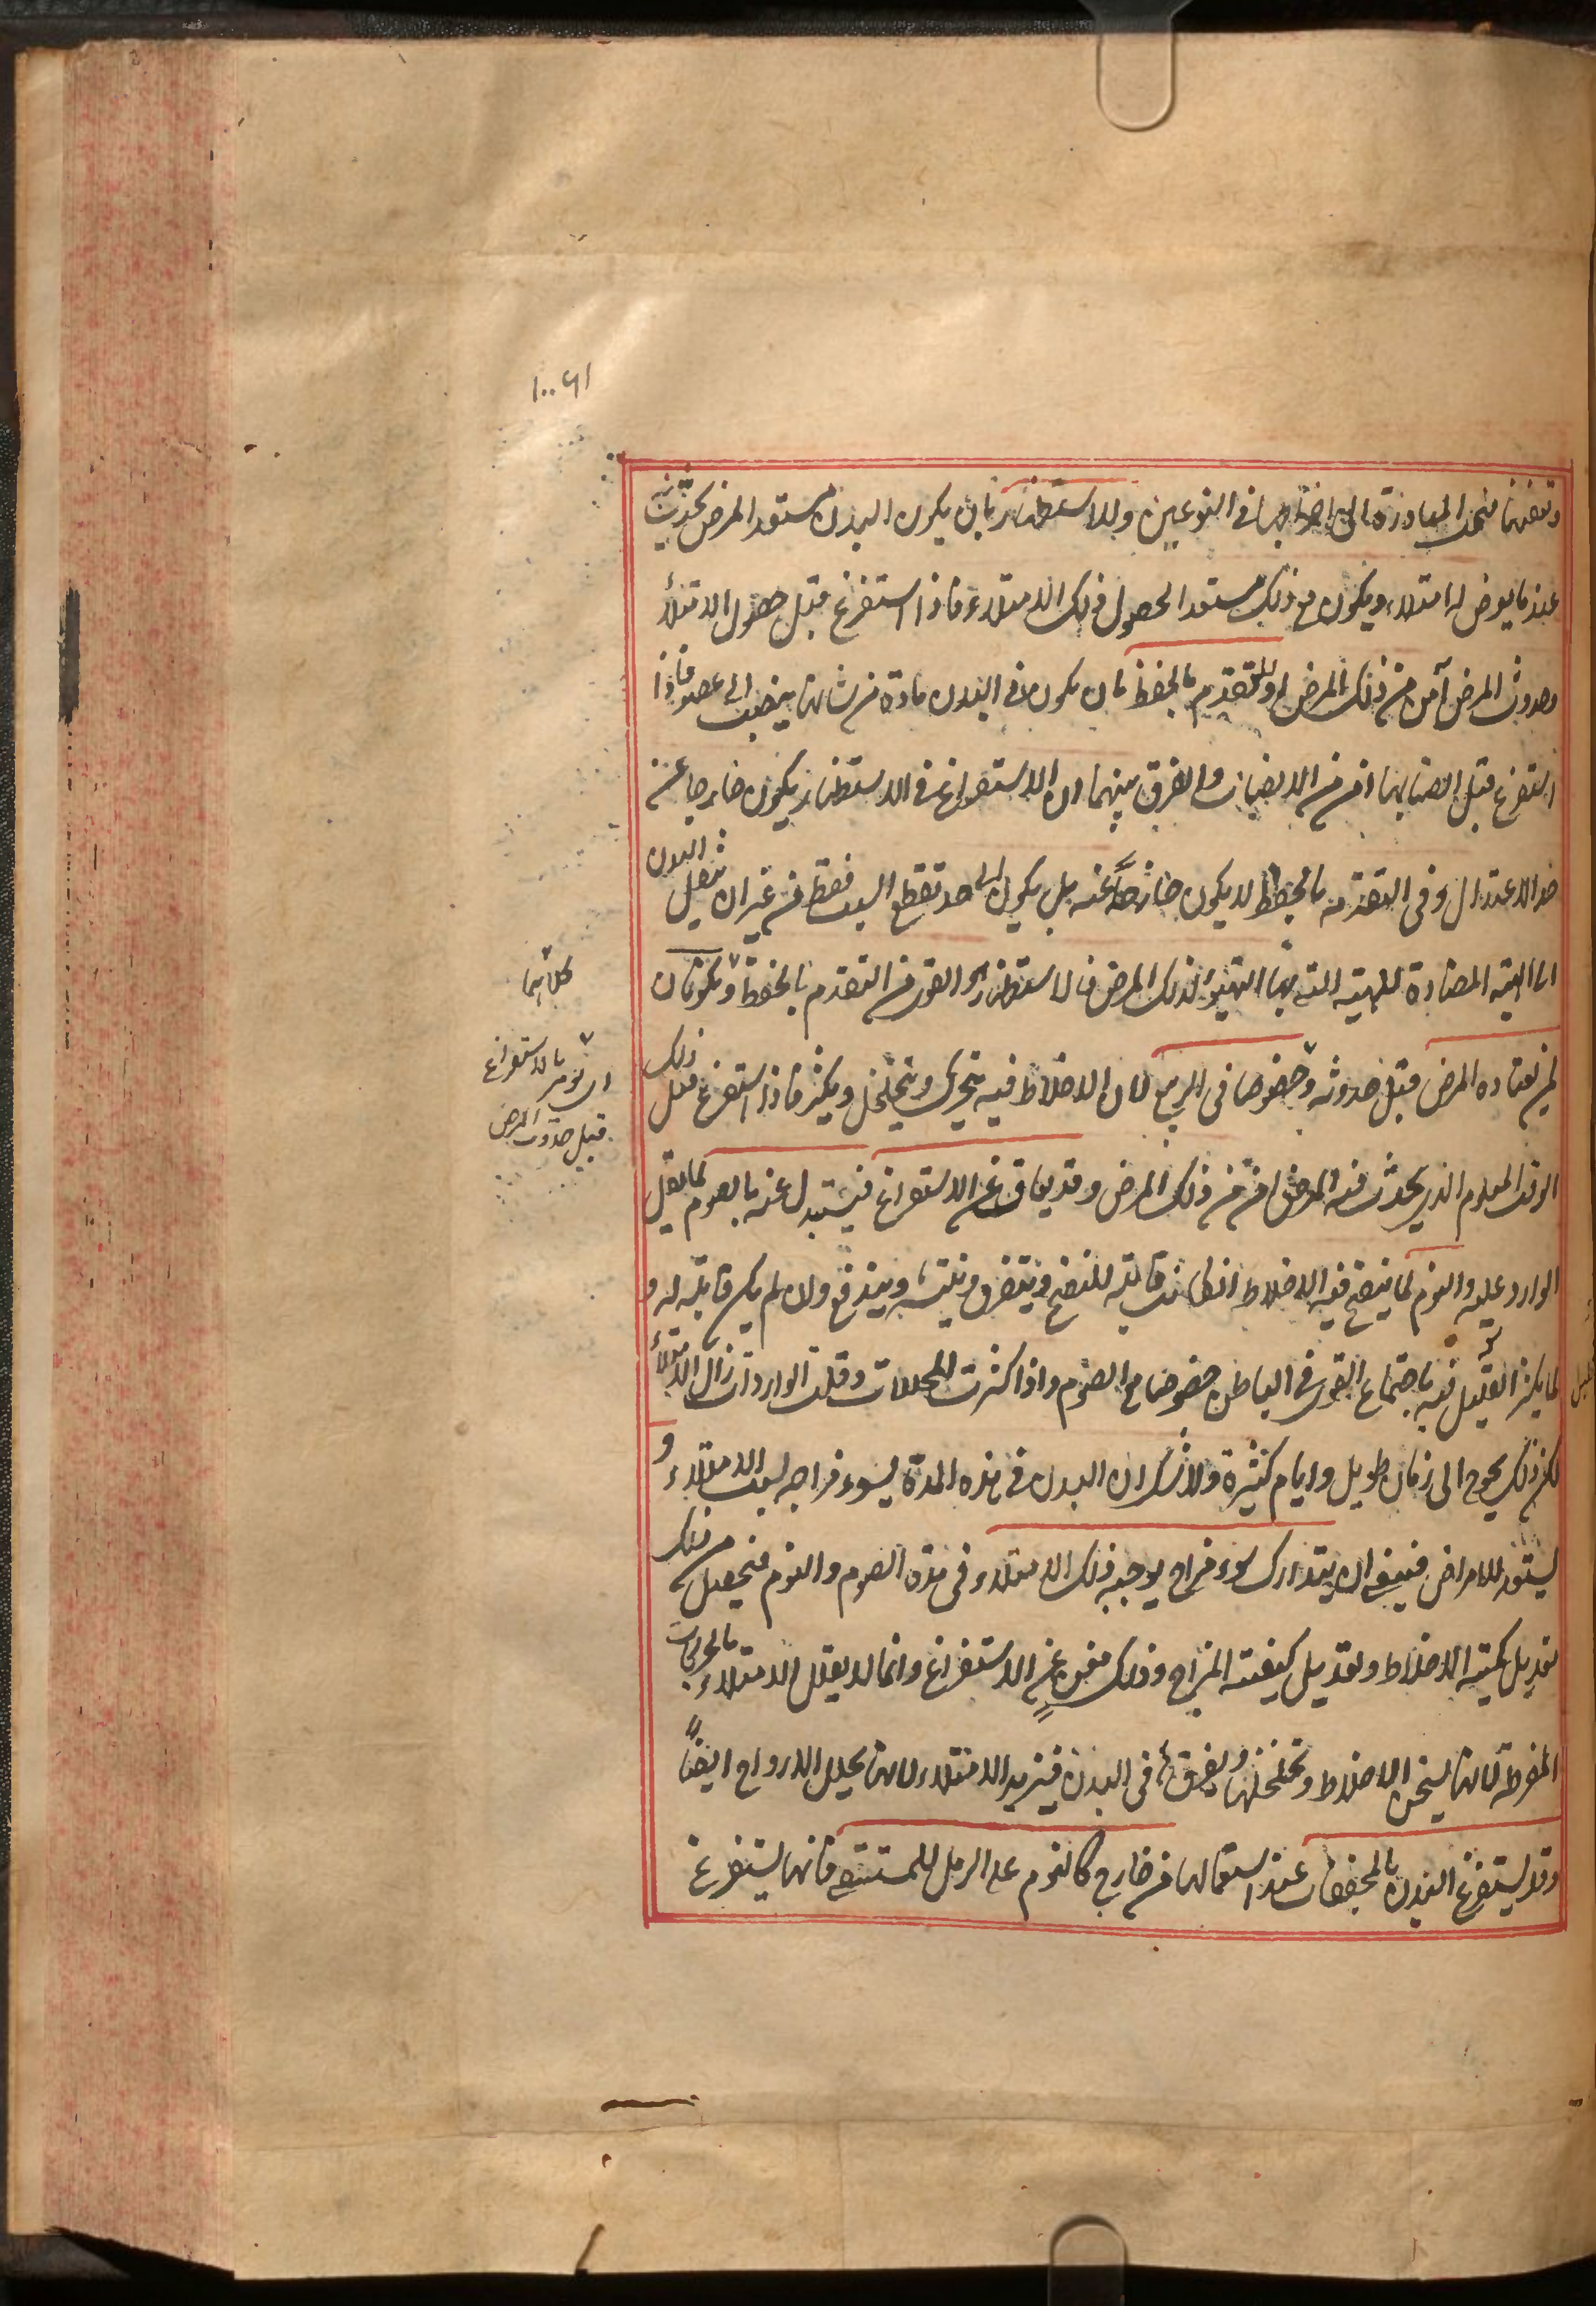 ١٠٠٤١
وتعفنها فتجب المبادرة الى اخراجها في النوعين وللاستظهار بان يكون البدن مستعد المرض يحدث
عند ما يعرض له امتلاء ويكون مع ذلك مستعدا لحصول ذلك الامتلاء فاذا استفرغ قبل حصول الامتلاء
وحدوث المرض آمن من ذلك المرض او للتقدم بالحفظ بان يكون في البدن مادة من شانها ينصب الى عضو فاذا
استفرغ قبل انصبابها امن من الانصباب والفرق بينهما ان الاستفراغ في الاستظهار يكون خارجا عن
حد الاعتدال وفي التقدمة بالحفظ لا يكون خارجا عنه بل يكون الى حد تقطع السبب فقط من غير ان ينقل البدن
الى الهيئة المضادة للهيئة التي بها التهيؤ لذلك المرض فالاستظهار اقوى من التقدم بالحفظ ويكونان
لمن يعتاده المرض قبل حدوثه وخصوصا في الربيع لان الاخلاط فيه يتحرك ويتخلخل ويكثر فاذا استفرغ قبل ذلك
الوقت المعلوم الذي يحدث فيه المرض امن من ذلك المرض وقد يعاق عن الاستفراغ فيستبدل عنه بالصوم لما يقل
الوارد عليه والنوم لما ينضج فيه الاخلاط ان كانت قابلة للنضج ويتفرق ويتشبه ويندفع وان لم يكن قابلة له و
لما يكثر التحليل فيه باجتماع القوى في الباطن خصوصا مع الصوم واذا كثرت المحللات وقلت الواردات زال الامتلاء
لكن ذلك يحوج الى زمان طويل وايام كثيرة ولا شك ان البدن في هذه المدة يسوء مزاجه لسبب الامتلاء و
يستعد للامراض فينبغي ان يتدارك سوء مزاج يوجبه ذلك الامتلاء في مدة الصوم والنوم فيحصل من ذلك
تعديل كمية الاخلاط وتعديل كيفية المزاج وذلك مغن عن الاستفراغ وانما لا يقلل الامتلاء بالحركات
المفرطة لانها يسخن الاخلاط وتخلخلها ويفرق في البدن فيزيد الامتلاء لانها يحلل الارواح ايضاً
وقد يستفرغ البدن بالمجففات عند استعمالها من خارج كالنوم على الرمل للمستسقي فانها يستفرغ
كلاهما
اى يؤمر بالاستفراغ
قبل حدوث المرض